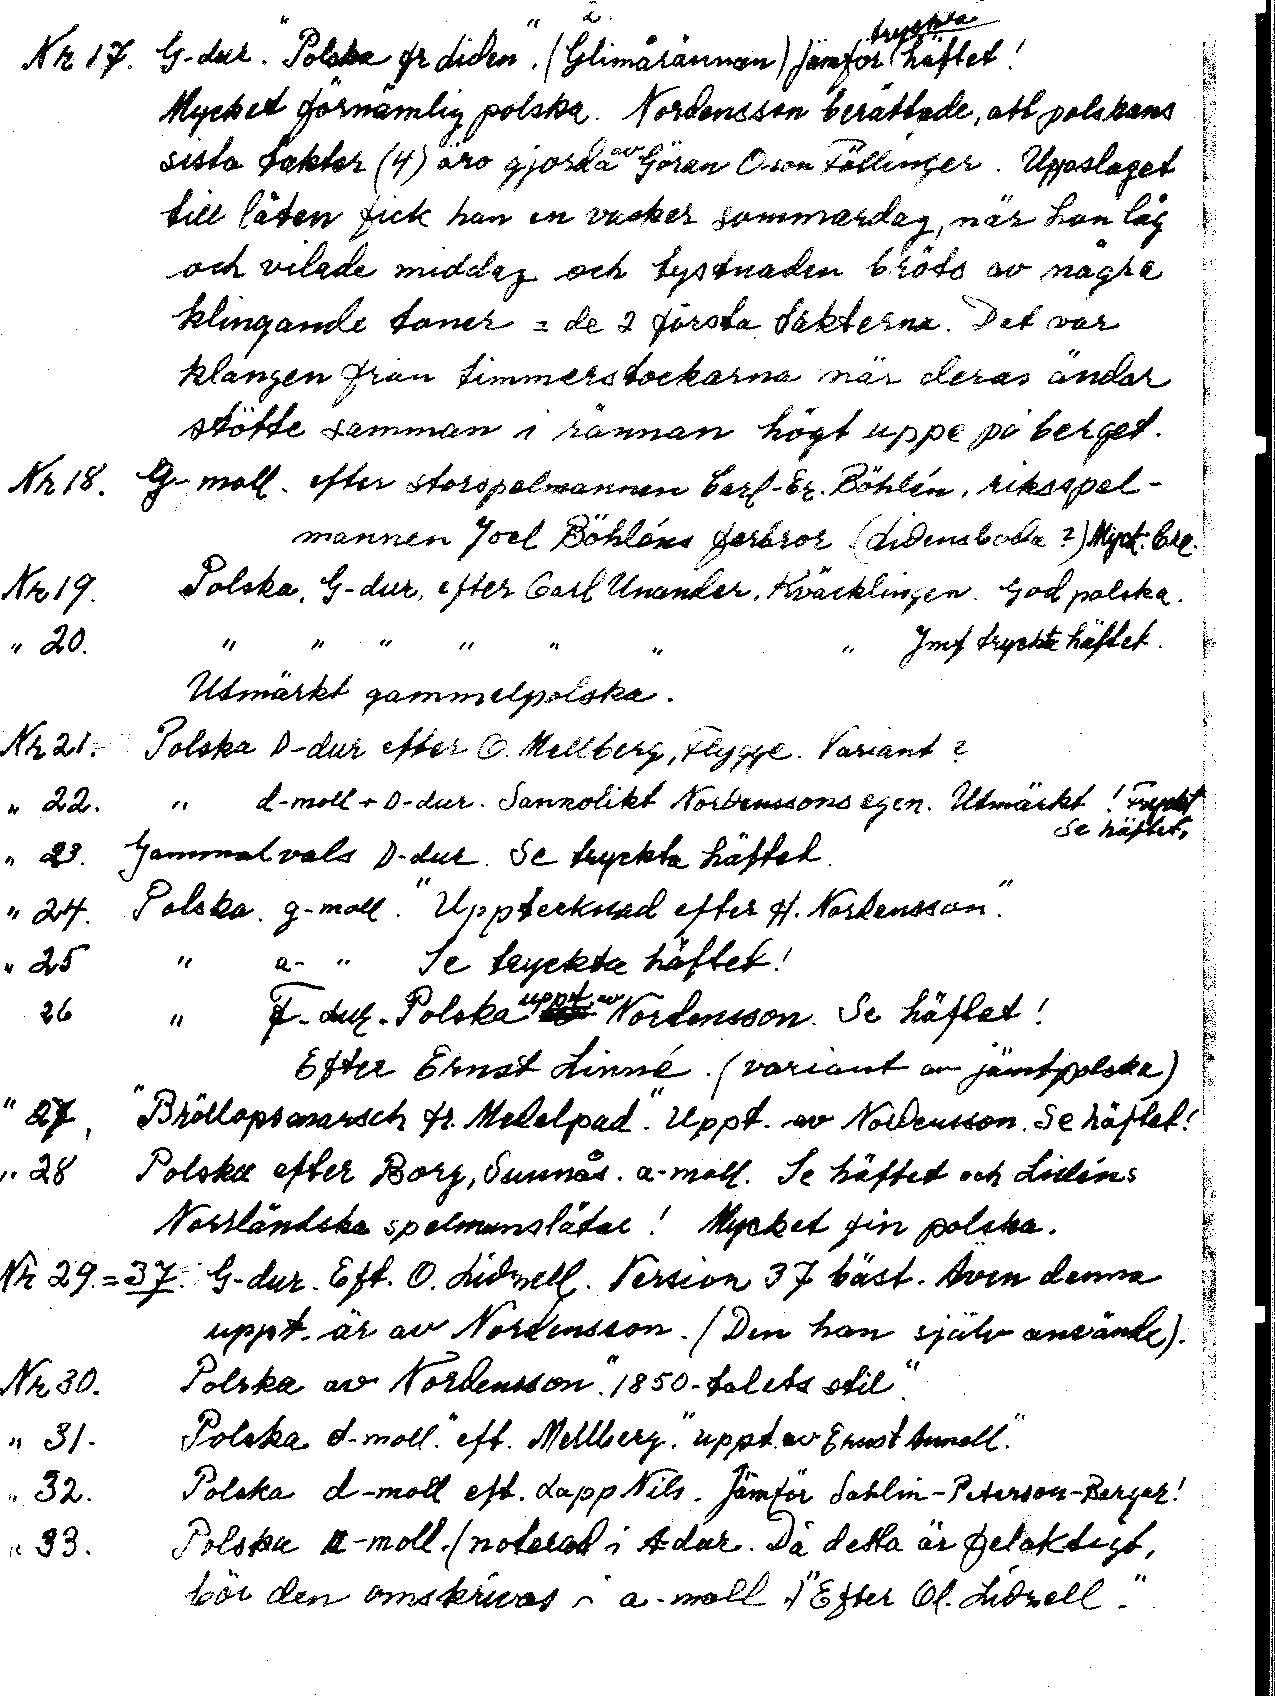 Nr 17. G-dur. "Polska fr Liden". (Glimårännan) Jämför tryckta häftet!
Mycket förnämlig polska. Nordensson berättade, att polskans
sista takter (4) äro gjorda av Göran Oson Föllinger. Uppslaget
till låten fick han en vacker sommardag, när han låg
och vilade middag och tystnaden bröts av några
klingande toner = de 2 första takterna. Det var
klangen från timmerstockarna när deras ändar
stötte samman i rännan högt uppe på berget.
Nr 18. G-moll. efter storspelmannen Carl-Er. Böhlén, riksspel-
mannen Joel Böhléns farbror (Lidensboda?) Myck. bra.
Nr 19. Polska, G-dur, efter Carl Unander, Kväcklingen. God polska.
" 20. " " " " " " " Jmf tryckta häftet.
Utmärkt gammelpolska.
Nr 21. Polska D-dur efter O. Mellberg, Flygge. Variant?
" 22. " d-moll + D-dur. Sannolikt Nordenssons egen. Utmärkt! Tryckt
Se häftet,
" 23. Gammal vals D-dur. Se tryckta häftet.
" 24. Polska. g-moll. "Upptecknad efter H. Nordensson".
" 25 " a- " Se tryckta häftet!
26 " F-dur. Polska uppt. av Nordensson. Se häftet!
Efter Ernst Linné. (variant av jämtpolska)
" 27, "Bröllopsmarsch fr. Medelpad". Uppt. av Nordensson. Se häftet!
" 28 Polska efter Borg, Sunnås. a-moll. Se häftet och Lidéns
Norrländska spelmanslåtar! Mycket fin polska.
Nr 29. = 37. G-dur. Eft. O. Lidzell. Version 37 bäst. Även denna
uppt. är av Nordensson. (Den han själv använde).
Nr 30. Polska av Nordensson. "1850-talets stil".
" 31. Polska d-moll. "eft. Mellberg". "uppt. av Ernst
" 32. Polska d-moll eft. Lapp Nils. Jämför Sahlin-Peterson-Berger!
" 33. Polska a-moll. (noterad i A dur. Då detta är felaktigt,
bör den omskrivas i a-moll.) "Efter Ol. Lidzell".